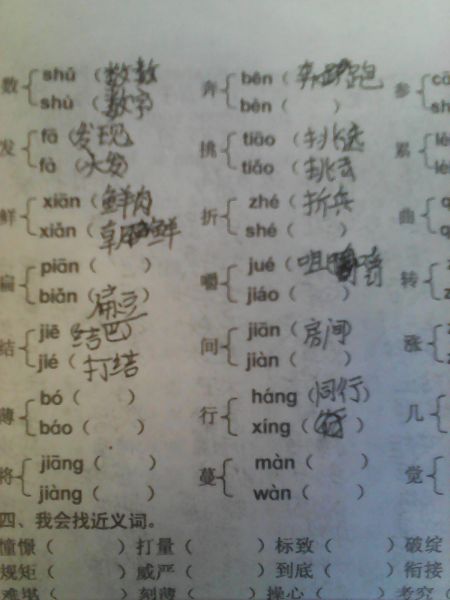 数 shǔ（数数 奔 bēn（奔跑 参 cā
shù（数字 bèn（ ） sh
发 fā（发现 挑 tiāo（挑选 累 lé
fà（火发 tiǎo（挑 lè
鲜 xiān（鲜肉 折 zhé（折兵 曲 q
xiǎn（朝鲜 shé（ ） q
扁 piān（ ） 嚼 jué（咀嚼 转 z
biǎn（扁豆 jiáo（ ） z
结 jiē（结巴 间 jiān（房间 涨
jié（打结 jiàn（ ）
薄 bó（ ） 行 háng（同行） 几
báo（ ） xíng（ ）
将 jiāng（ ） 蔓 màn（ ） 觉
jiàng（ ） wàn（ ）
四、我会找近义词。
憧憬（ ）打量（ ）标致（ ）破绽（
规矩（ ）威严（ ）到底（ ）衔接（
难堪（ ）刻薄（ ）操心（ ）考究（